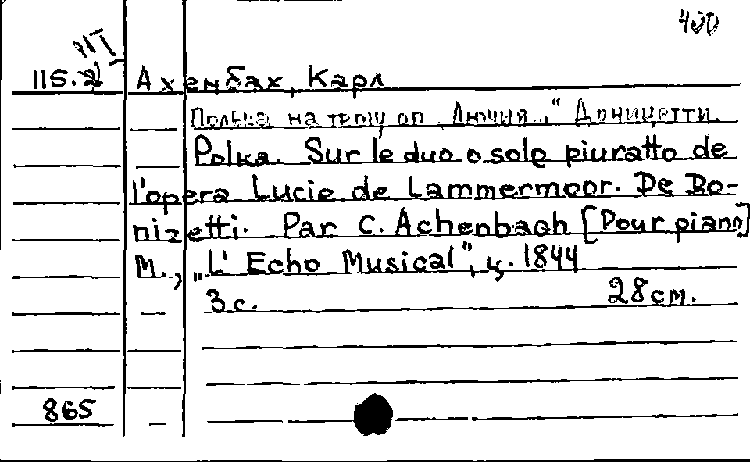 400
НТ
115.2 Ахенбах, Карл
Полька на тему оп. „Лючия..." Доницетти.
Polka. Sur le duo o sole piuratto de
l'opera Lucie de Lammermoor. De Do-
nizetti. Par C. Achenbach [Pour piano]
М., „L' Echo Musical", ц. 1844
3 с. 28 см.
865